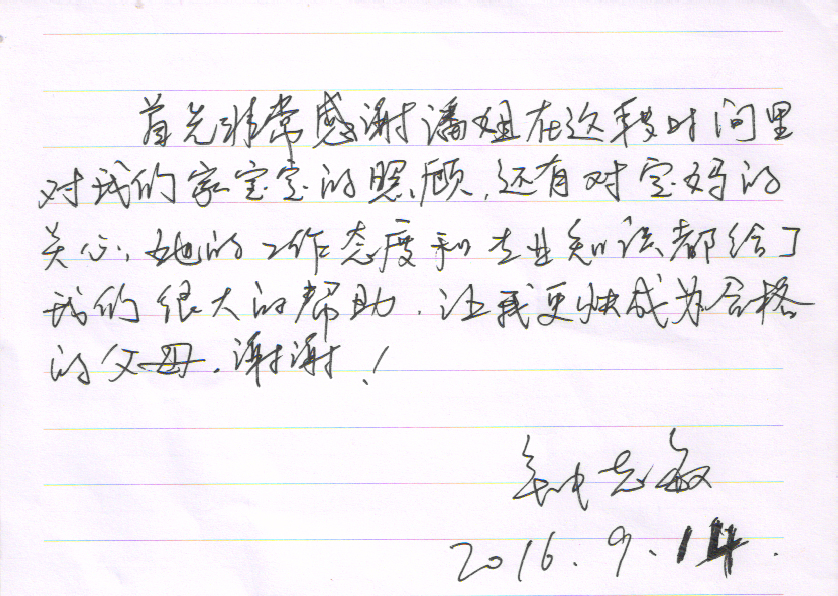 首先非常感谢潘姐在这段时间里
对我们家宝宝的照顾，还有对宝妈的
关心，她的工作态度和专业知识都给了
我们很大的帮助，让我更快成为合格
的父母，谢谢！
钟志敏
2016.9.14.